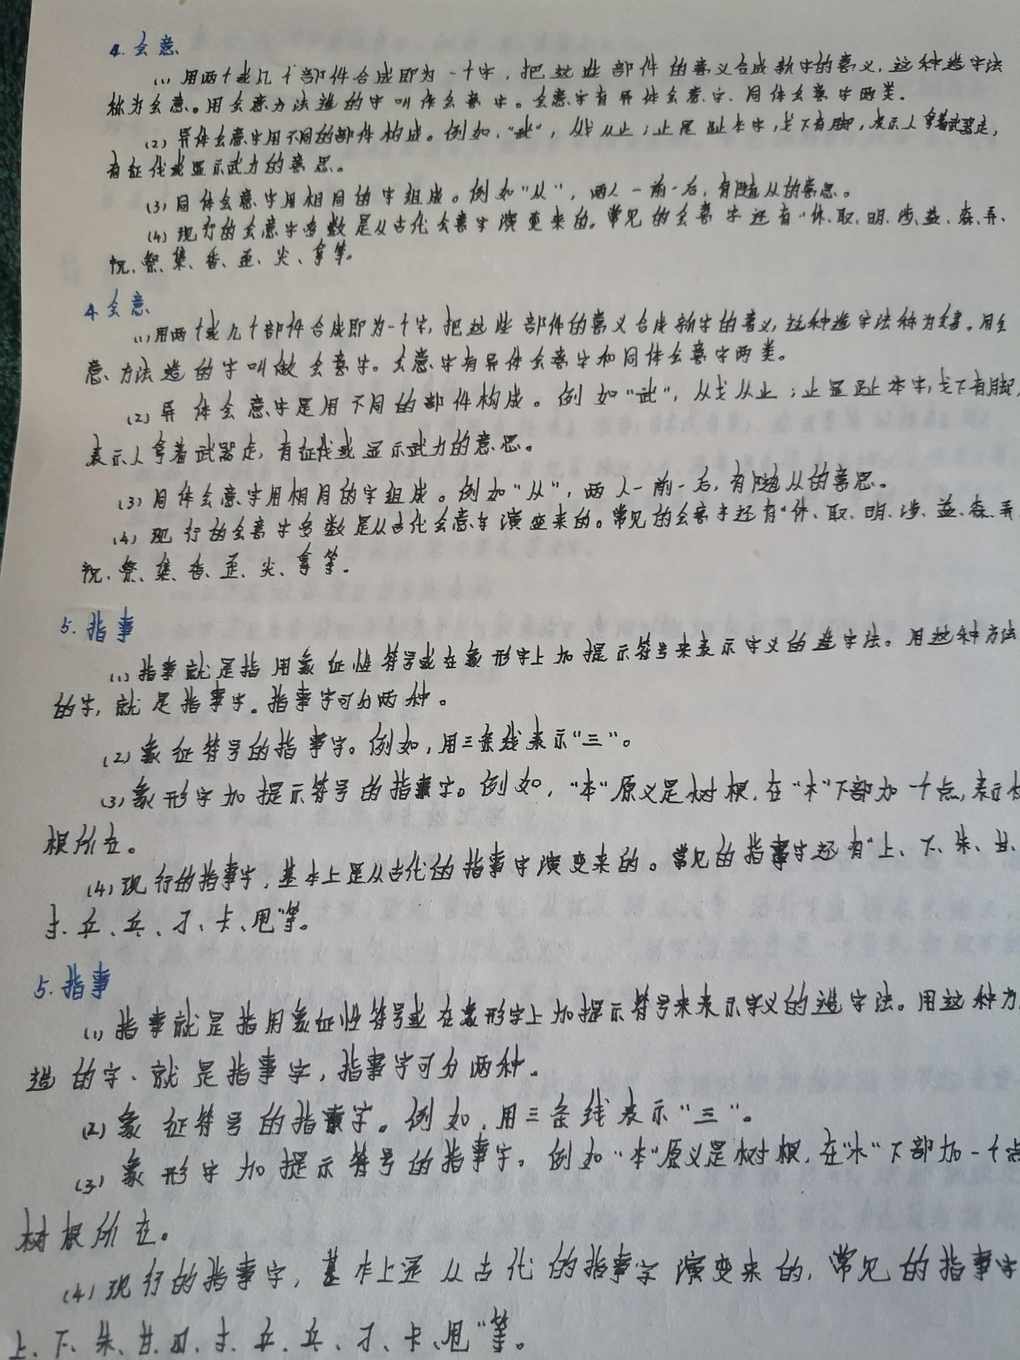 4.会意
(1)用两个或几个部件合成即为一个字，把这些部件的意义合成新字的意义，这种造字法
称为会意。用会意方法造的字叫作会意字。会意字有异体会意字、同体会意字两类。
(2)异体会意字用不同的部件构成。例如，“武”，从戈从止；止是趾本字，戈下有脚，表示人拿着武器走，
有征伐或显示武力的意思。
(3)同体会意字用相同的字组成。例如“从”，两人一前一后，有随从的意思。
(4)现行的会意字多数是从古代会意字演变来的。常见的会意字还有“休、取、明、涉、益、森、弄、
祝、祭、集、香、歪、尖、拿等。
4.会意
(1)用两个或几个部件合成即为一个字，把这些部件的意义合成新字的意义，这种造字法称为会意。用会
意方法造的字叫做会意字。会意字有异体会意字和同体会意字两类。
(2)异体会意字是用不同的部件构成。例如“武”，从戈从止；止是趾本字，戈下有脚，
表示人拿着武器走，有征伐或显示武力的意思。
(3)同体会意字用相同的字组成。例如“从”，两人一前一后，有随从的意思。
(4)现行的会意字多数是从古代会意字演变来的。常见的会意字还有“休、取、明、涉、益、森、弄
祝、祭、集、香、歪、尖、拿等。
5.指事
(1)指事就是指用象征性符号或在象形字上加提示符号来表示字义的造字法。用这种方法
的字，就是指事字。指事字可分两种。
(2)象征符号的指事字。例如，用三条线表示“三”。
(3)象形字加提示符号的指事字。例如，“本”原义是树根，在“木”下部加一个点，表示树
根所在。
(4)现行的指事字，基本上是从古代的指事字演变来的。常见的指事字还有“上、下、朱、甘、
寸、乒、乓、刁、卡、甩”等。
5.指事
(1)指事就是指用象征性符号或在象形字上加提示符号来表示字义的造字法。用这种方
造的字、就是指事字，指事字可分两种。
(2)象征符号的指事字。例如，用三条线表示“三”。
(3)象形字加提示符号的指事字。例如“本”原义是树根，在“木”下部加一个点
树根所在。
(4)现行的指事字，基本上是从古代的指事字演变来的，常见的指事字
上、下、朱、甘、四、寸、乒、乓、刁、卡、甩”等。